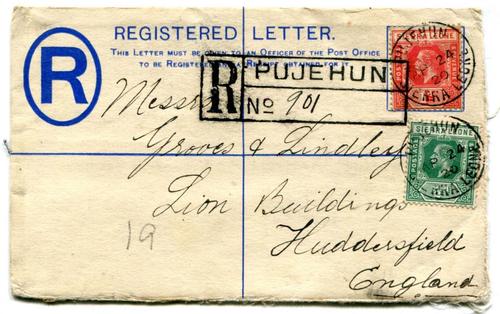 REGISTERED LETTER.
THIS LETTER MUST BE GIVEN TO AN OFFICER OF THE POST OFFICE
TO BE REGISTERED AND A RECEIPT OBTAINED FOR IT.
R
R
PUJEHUN
No 901
PUJEHUN
24
20
SIERRA LEONE
SIERRA LEONE
POSTAGE
24
20
Messrs
Groves & Lindley
Lion Buildings
Huddersfield
England
19